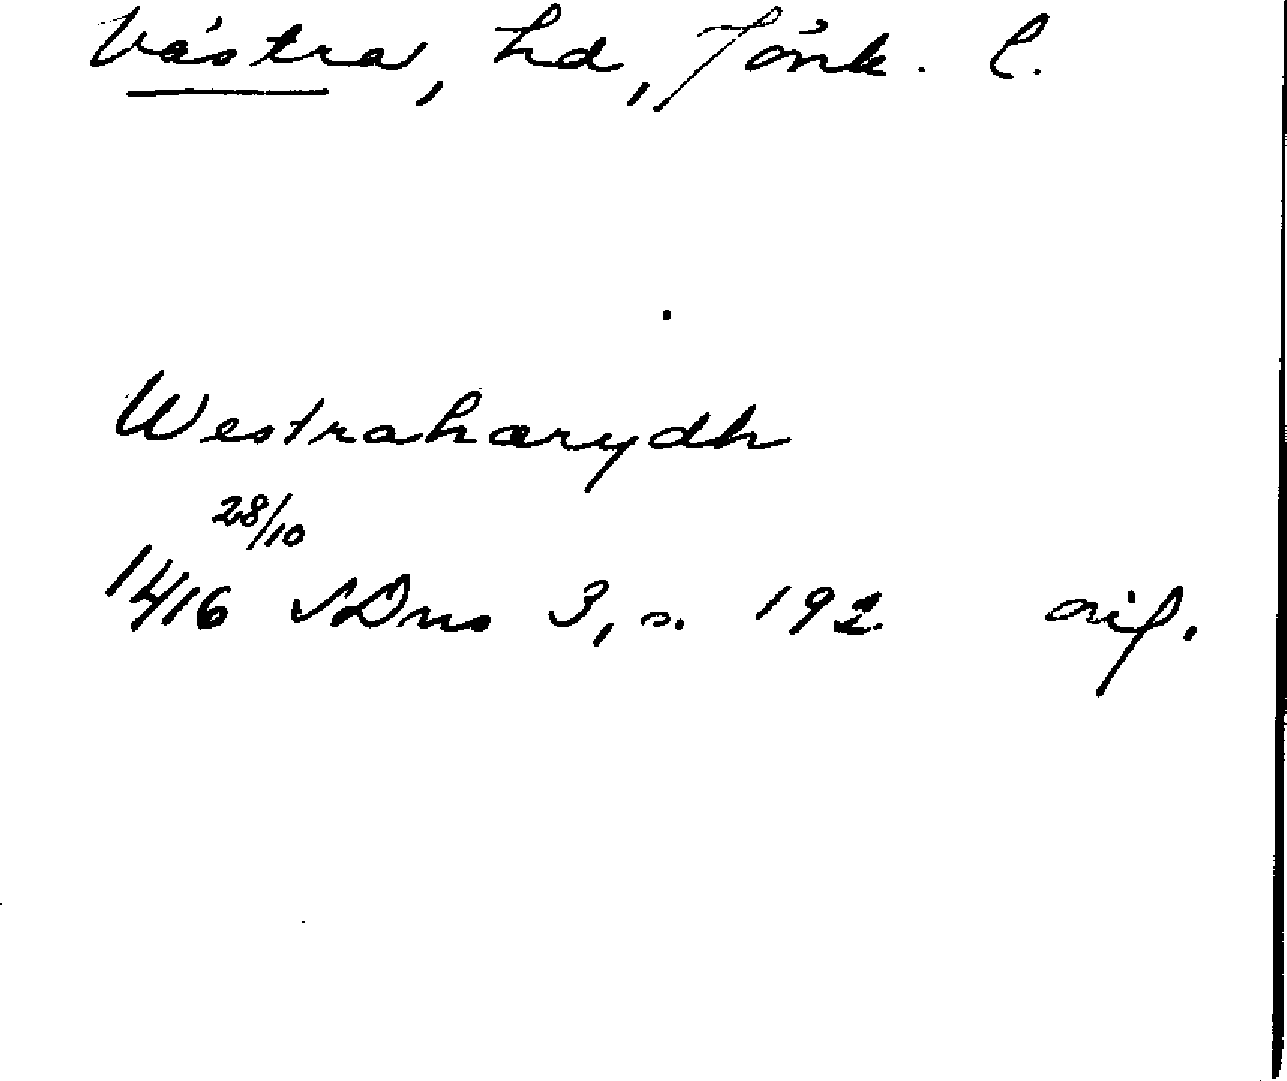 Västra, hd, Jönk. l.
Westrahærydh
28/10
1416 SDns 3, s. 192 orig.